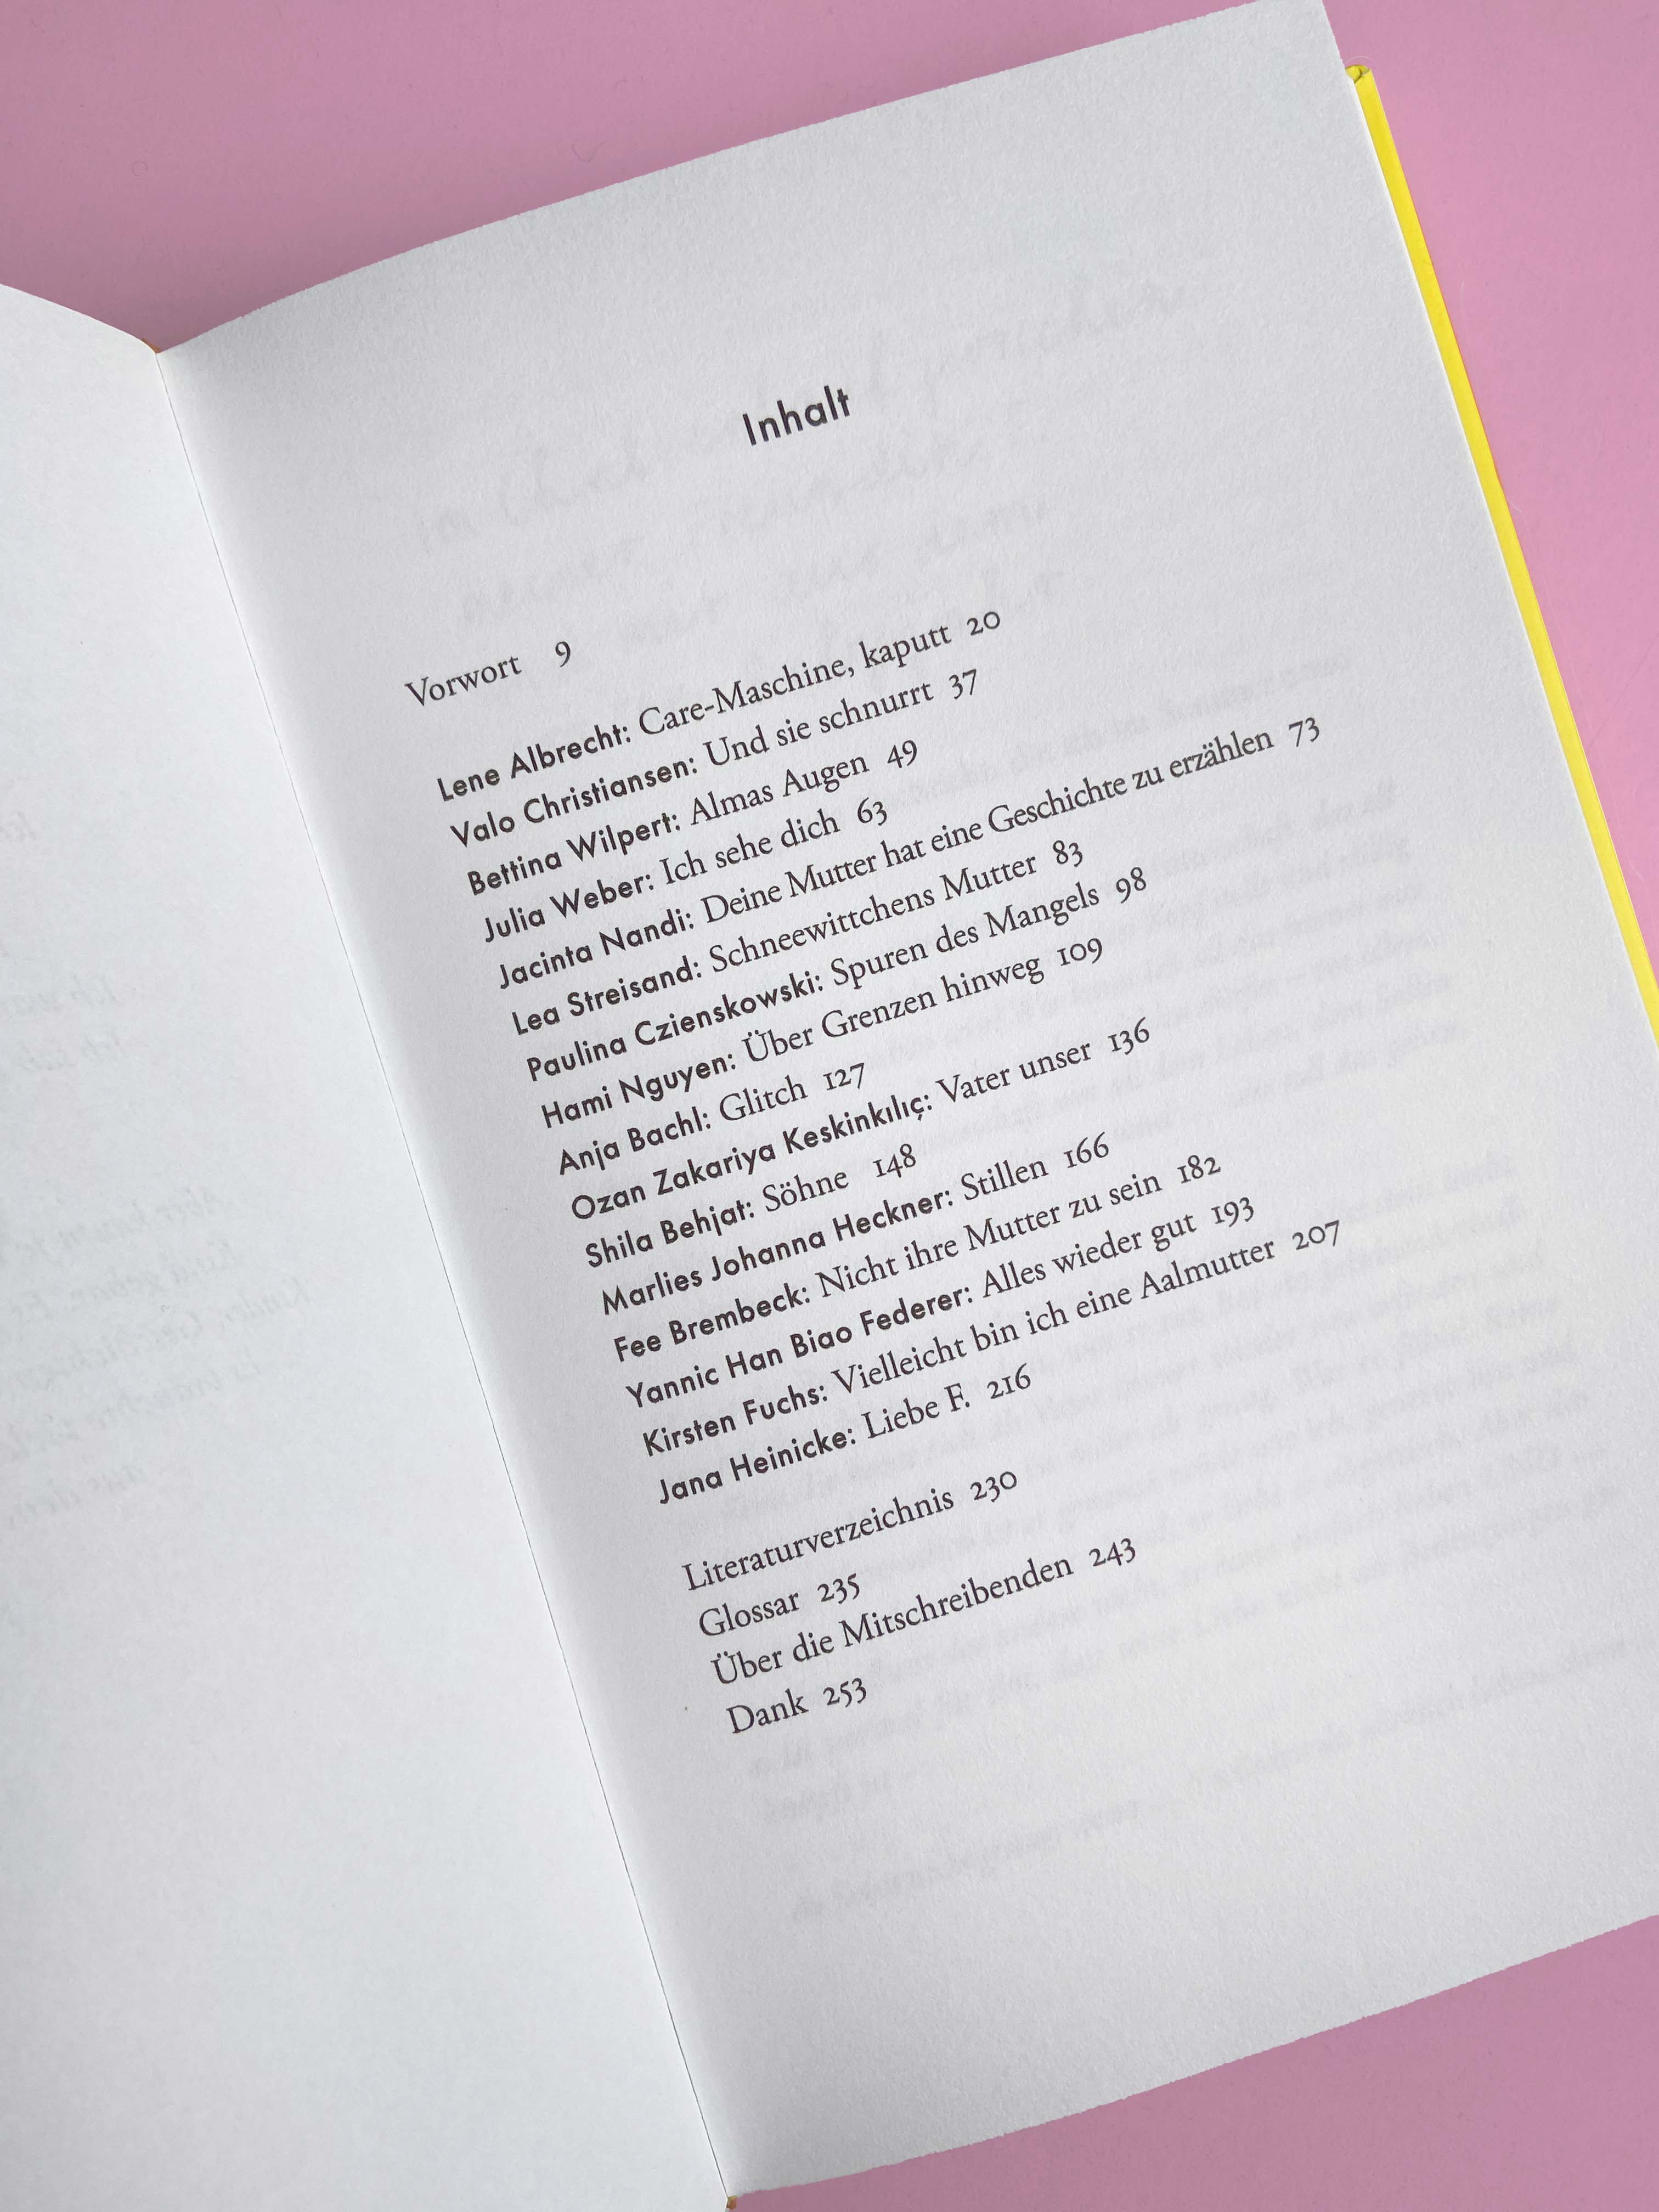 Inhalt
Vorwort 9
Lene Albrecht: Care-Maschine, kaputt 20
Valo Christiansen: Und sie schnurrt 37
Bettina Wilpert: Almas Augen 49
Julia Weber: Ich sehe dich 63
Jacinta Nandi: Deine Mutter hat eine Geschichte zu erzählen 73
Lea Streisand: Schneewittchens Mutter 83
Paulina Czienskowski: Spuren des Mangels 98
Hami Nguyen: Über Grenzen hinweg 109
Anja Bachl: Glitch 127
Ozan Zakariya Keskinkılıç: Vater unser 136
Shila Behjat: Söhne 148
Marlies Johanna Heckner: Stillen 166
Fee Brembeck: Nicht ihre Mutter zu sein 182
Yannic Han Biao Federer: Alles wieder gut 193
Kirsten Fuchs: Vielleicht bin ich eine Aalmutter 207
Jana Heinicke: Liebe F. 216
Literaturverzeichnis 230
Glossar 235
Über die Mitschreibenden 243
Dank 253